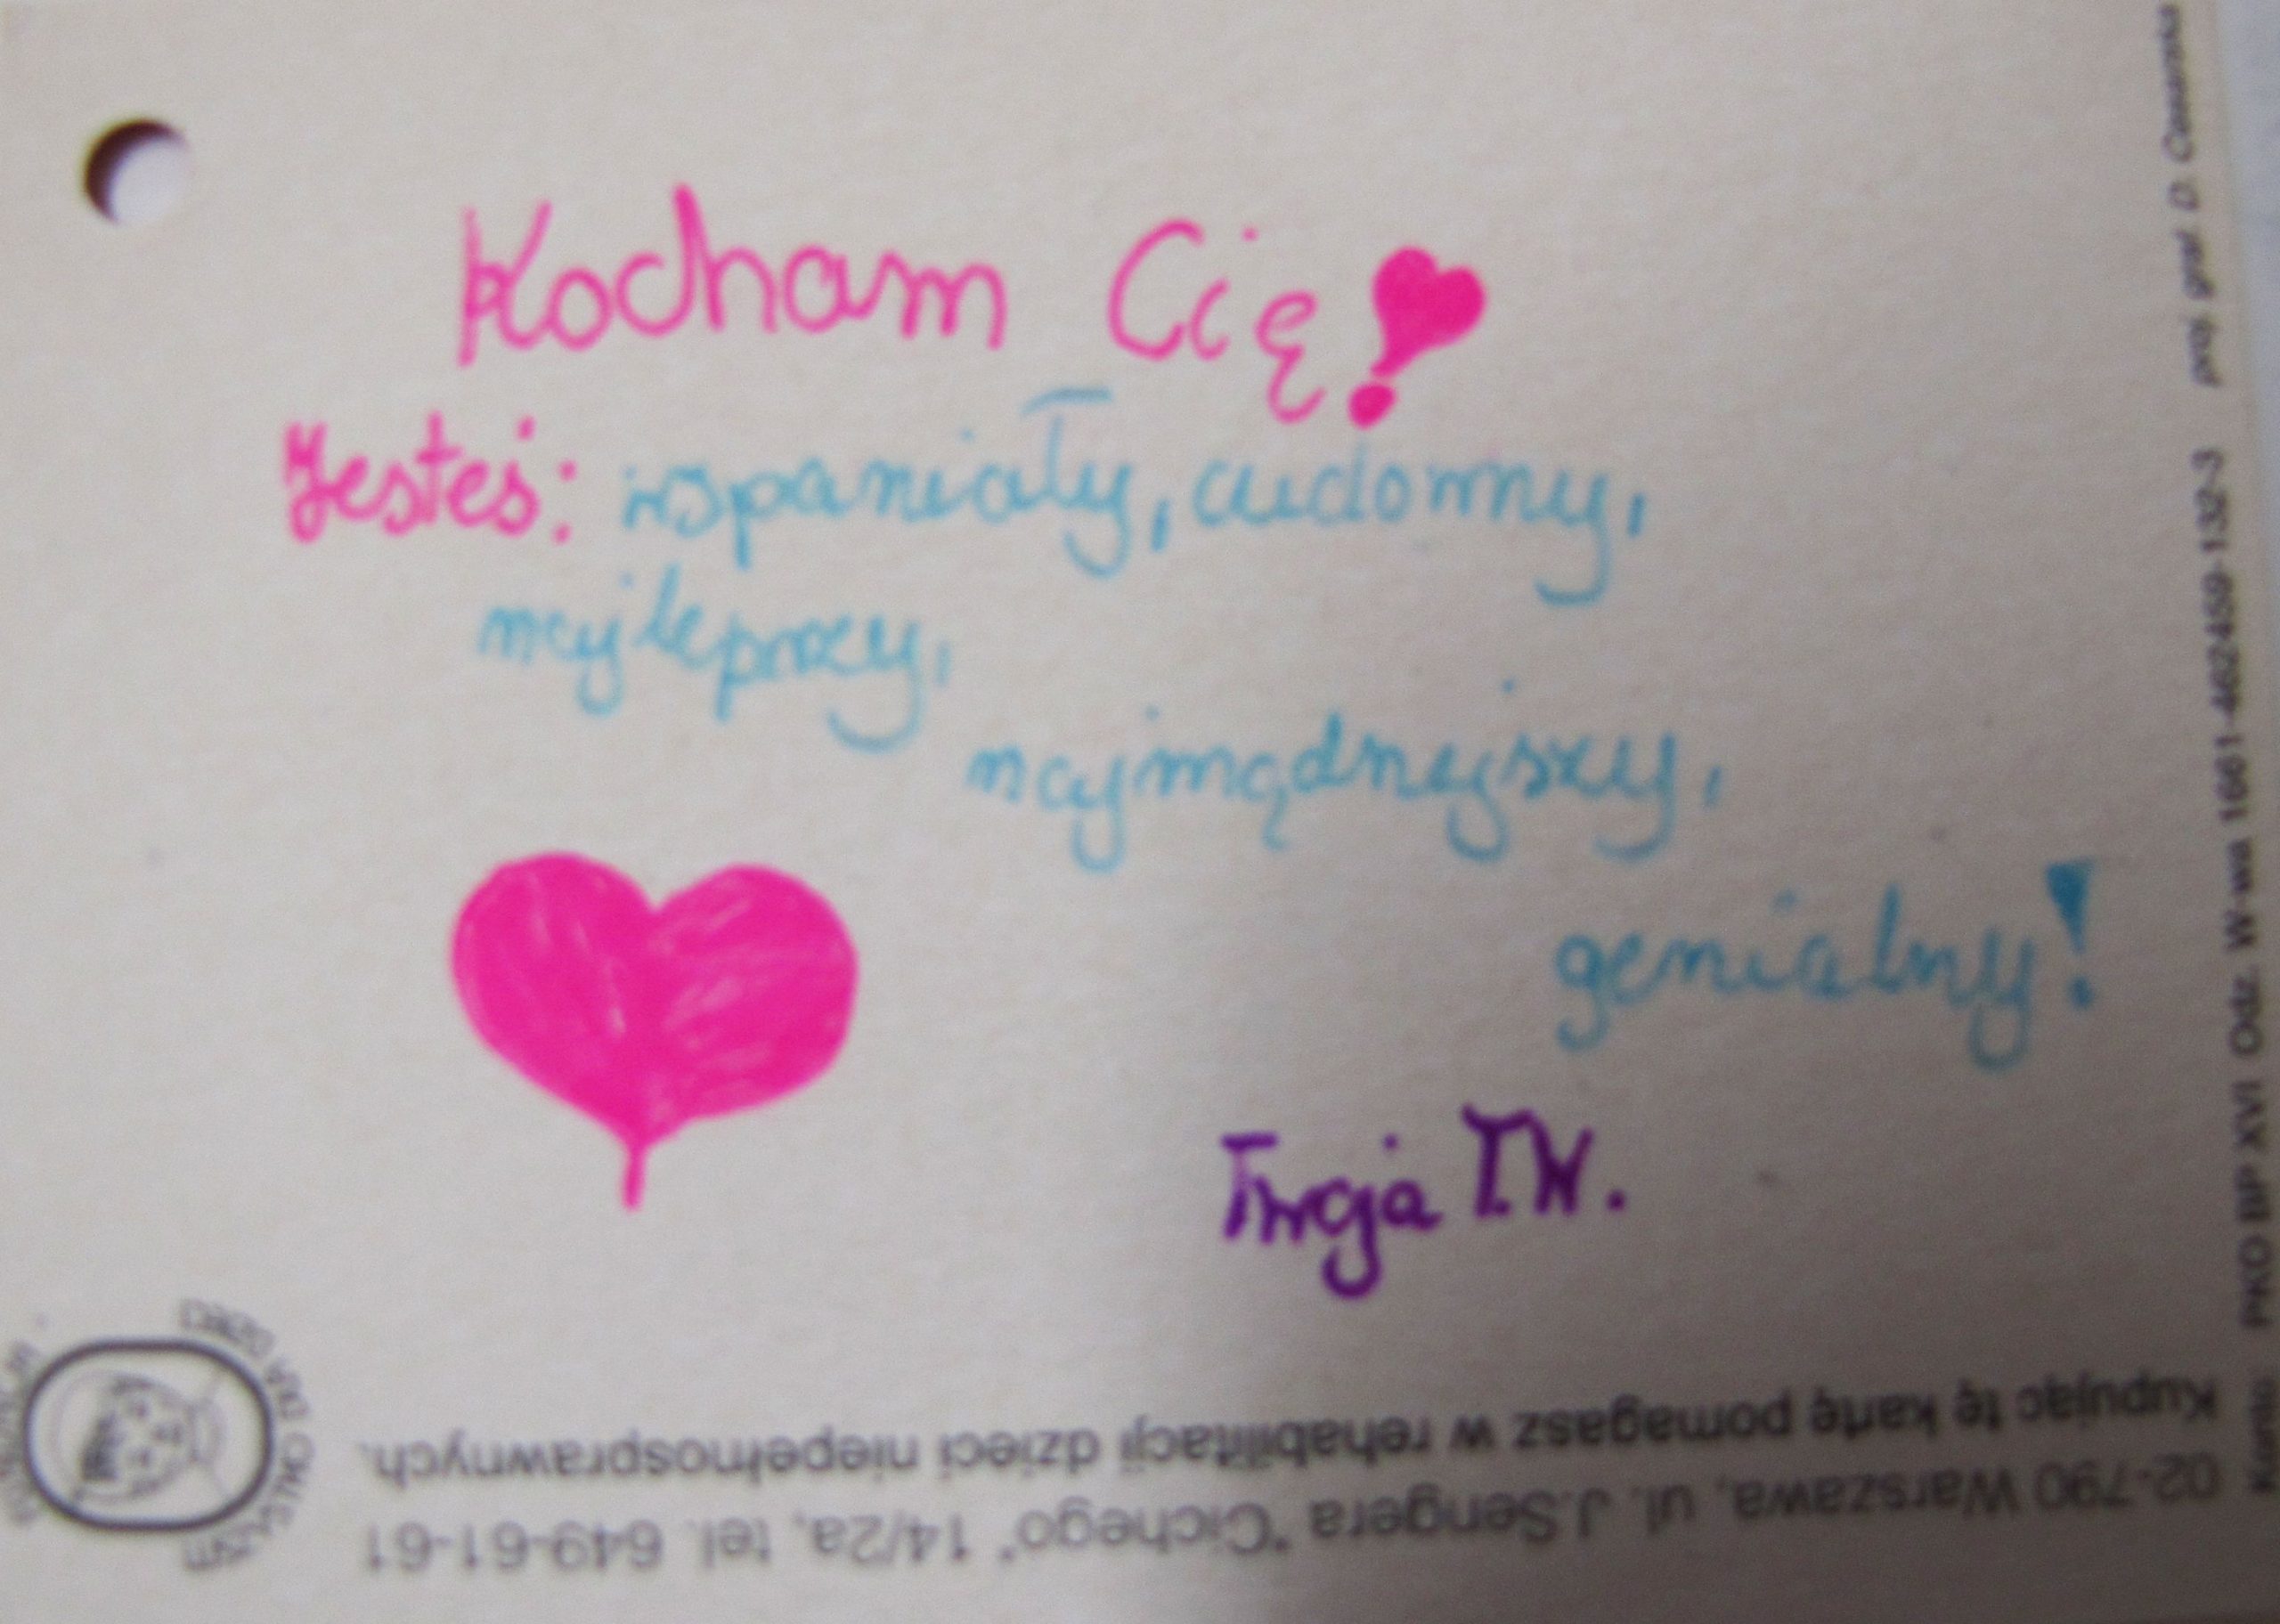 Kocham Cię!
Jesteś: wspaniały, cudowny,
najlepszy,
najmądrzejszy,
genialny!
Twoja T.W.
Kupując tę kartę pomagasz w rehabilitacji dzieci niepełnosprawnych.
02-790 Warszawa, ul. J.Sengera "Cichego" 14/2a, tel. 649-61-61
Konto: PKO BP XVI Odz. W-wa 1661-462459-132-3 proj. graf. D.
DLA DZIECI